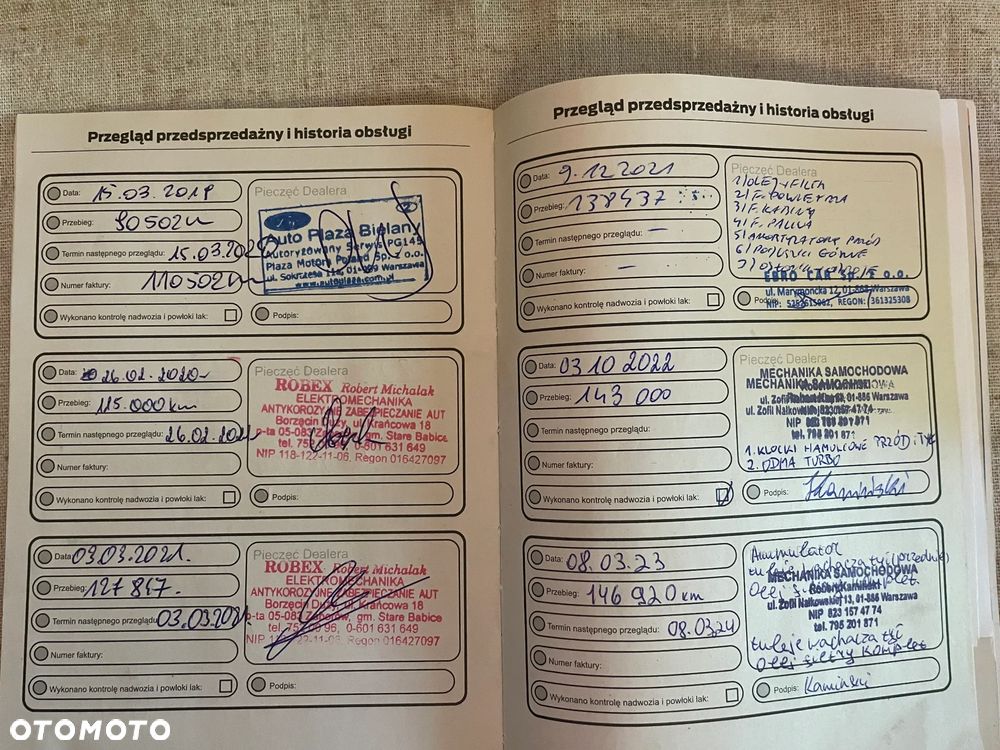 Przegląd przedsprzedażny i historia obsługi
Data: 15.03.2019
Przebieg: 90502km
Termin następnego przeglądu: 15.03.2020
Numer faktury: 110502km
Wykonano kontrolę nadwozia i powłoki lak:
Pieczęć Dealera
Auto Plaza Bielany
Autoryzowany Serwis PG145
Plaza Motors Poland Sp. z o.o.
ul. 11a, 01-909 Warszawa
www.autoplaza.com.pl
Podpis:
Data: 26.02.2020
Przebieg: 115.000km
Termin następnego przeglądu: 26.02.2021
Numer faktury:
Wykonano kontrolę nadwozia i powłoki lak:
Pieczęć Dealera
ROBEX Robert Michalak
ELEKTROMECHANIKA
ANTYKOROZYJNE ZABEZPIECZANIE AUT
Borzęcin Duży, ul. Krańcowa 18
p-ta 05-083 Zaborów, gm. Stare Babice
tel. 0-601 631 649
NIP 118-122-11-06, Regon 016427097
Podpis:
Data: 03.03.2021.
Przebieg: 127 847.
Termin następnego przeglądu: 03.03.
Numer faktury:
Wykonano kontrolę nadwozia i powłoki lak:
Pieczęć Dealera
ROBEX Robert Michalak
ELEKTROMECHANIKA
ANTYKOROZYJNE ZABEZPIECZANIE AUT
Borzęcin Duży, ul. Krańcowa 18
p-ta 05-083 Zaborów, gm. Stare Babice
tel. 96, 0-601 631 649
NIP 118-122-11-06, Regon 016427097
Podpis:
Przegląd przedsprzedażny i historia obsługi
Data: 9.12 2021
Przebieg: 138437
Termin następnego przeglądu: -
Numer faktury: -
Wykonano kontrolę nadwozia i powłoki lak:
Pieczęć Dealera
1) OLEJ + FILTR
2) F. POWIETRZA
3) F. KABINY
4) F. PALIWA
5) AMORTYZATORY PRZÓD
6) PODUSZKI GÓRNE
EURO CAR Sp. z o.o.
ul. Marymoncka 12, 01-868 Warszawa
REGON: 361325308
Podpis:
Data: 03 10 2022
Przebieg: 143 000
Termin następnego przeglądu:
Numer faktury:
Wykonano kontrolę nadwozia i powłoki lak:
Pieczęć Dealera
MECHANIKA SAMOCHODOWA
MECHANIKA SAMOCHODOWA
ul. Zofii Nałkowskiej 01-886 Warszawa
tel. 795 201 871
1. KLOCKI HAMULCOWE PRZÓD. TYŁ
2. ODMA TURBO
Podpis: Kamiński
Data: 08.03.23
Przebieg: 146 920 km
Termin następnego przeglądu: 08.03.24
Numer faktury:
Wykonano kontrolę nadwozia i powłoki lak:
Pieczęć Dealera
Akumulator
MECHANIKA SAMOCHODOWA
Robert Kamiński
ul. Zofii Nałkowskiej 13, 01-886 Warszawa
NIP 823 157 47 74
tel. 795 201 871
tuleje wahacza tył
Olej filtry komplet
Podpis: Kamiński
OTOMOTO